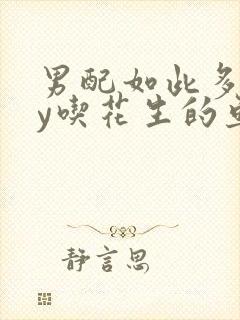 男配如此多
y喫花生的
静言思